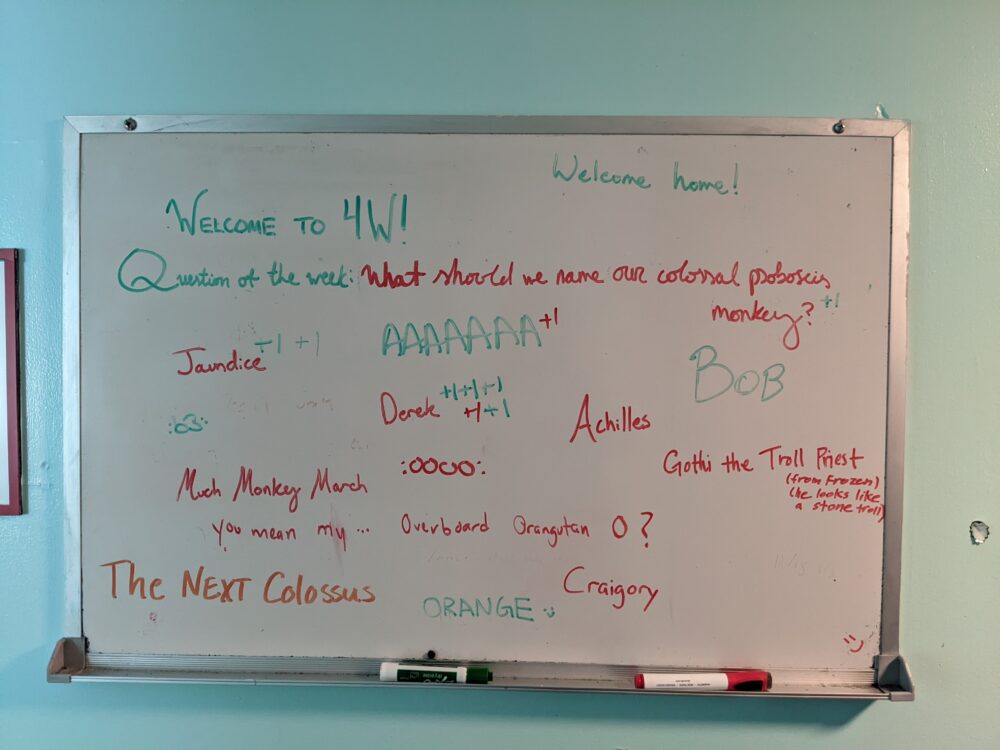 Welcome home!
WELCOME TO 4W!
Question of the week: What should we name our colossal proboscis
monkey? +1
Jaundice +1 +1
AAAAAAA +1
BOB
:o3:
Derek +1+1+1
+1+1
Achilles
Much Monkey March
Gothi the Troll Priest
(from Frozen)
(he looks like
a stone troll)
you mean my... Overboard Orangutan O?
The NEXT Colossus
Craigory
ORANGE :)